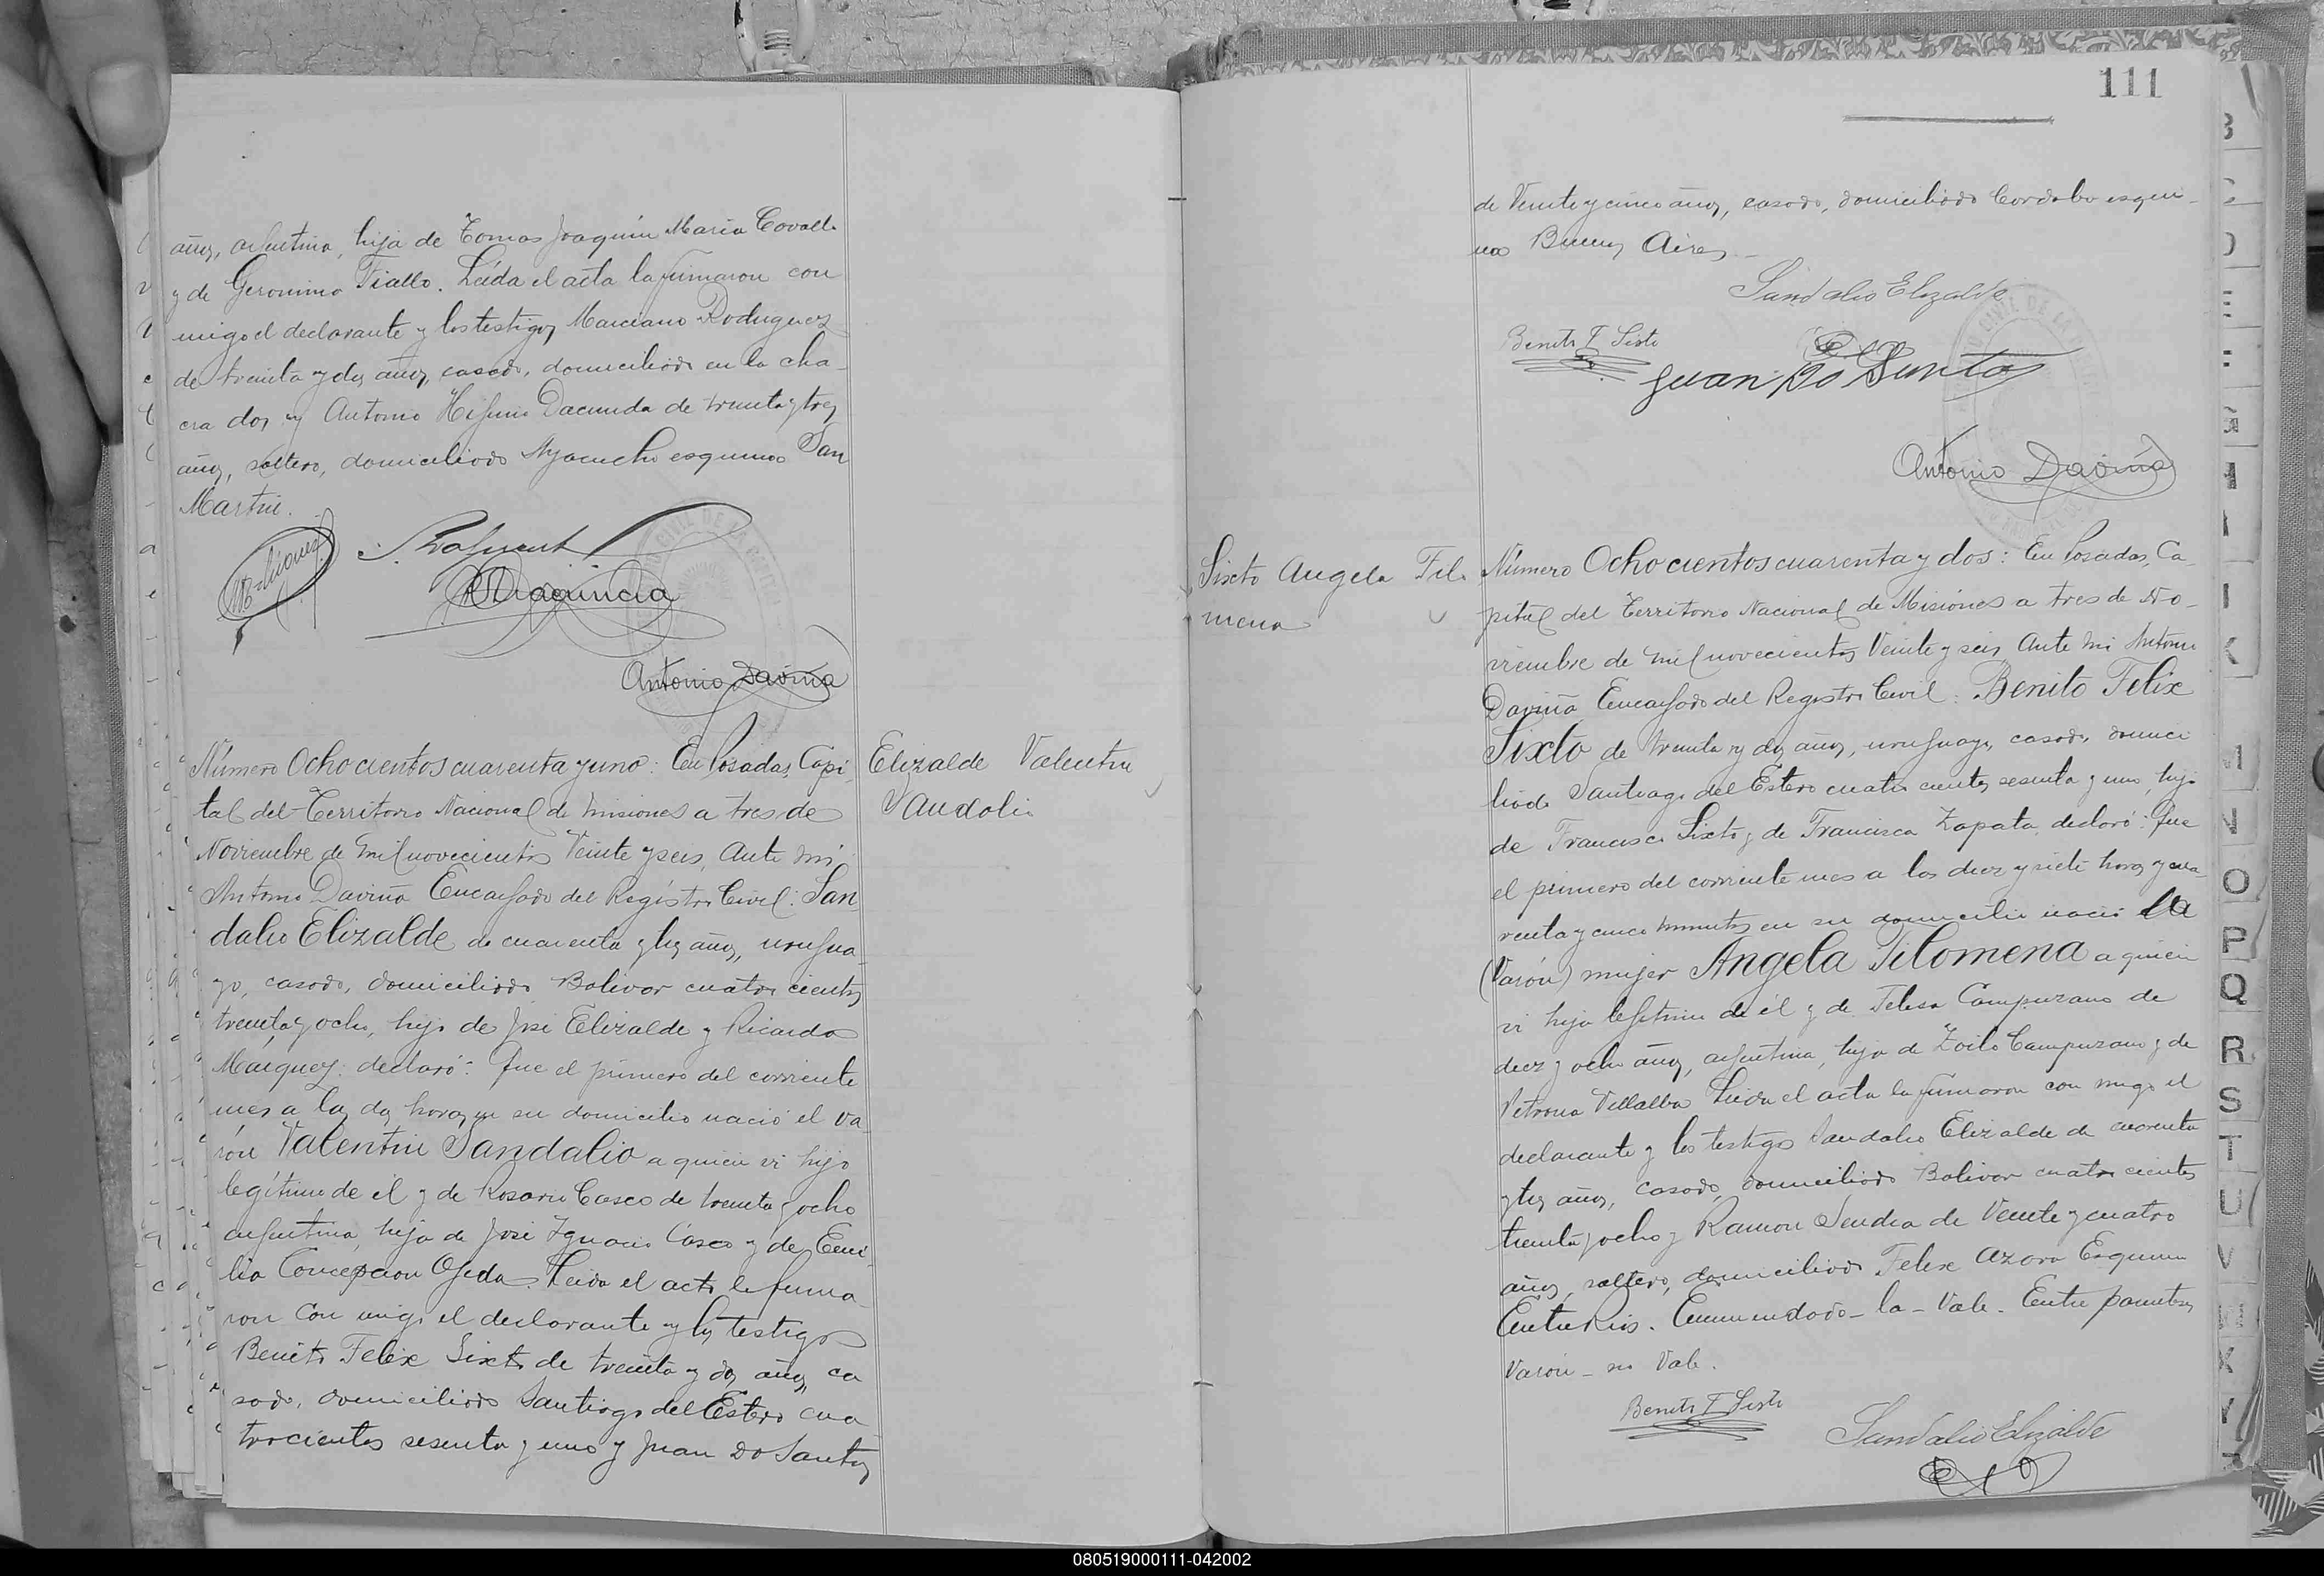 años, argentina, hija de Tomas Joaquín Maria Covall
y de Geronima Fiallo. Leída el acta la firmaron con
migo el declarante y los testigos Marciano Rodriguez
de treinta y dos años, casado, domiciliado en la cha-
cra dos y Antonio Higinio Dacunda de treinta y tres
años, soltero, domiciliado Ayacucho esquina San
Martin.
Antonio Daviña
Número Ochocientos cuarenta y uno: En Posadas, Capi-
tal del Territorio Nacional de Misiones a tres de
Noviembre de mil novecientos Veinte y seis, Ante mi
Antonio Daviña Encargado del Registro Civil: San-
dalio Elizalde de cuarenta y tres años, urugua-
yo, casado, domiciliado Bolivar cuatro cientos
treinta y ocho, hijo de José Elizalde y Ricarda
Marquez: declaró: Que el primero del corriente
mes a las dos horas, en su domicilio nació el va-
rón Valentin Sandalio a quien vi hijo
legítimo de él y de Rosario Casco de treinta y ocho
argentina, hija de José Ignacio Casco y de Emi-
lia Concepcion Ojeda. Leida el acta la firma-
ron con migo el declarante y los testigos
Benito Felix Sixto de treinta y dos años, ca
sado, domiciliado Santiago del Estero cua
trocientos sesenta y uno y Juan Do Santos
Elizalde Valentin
Sandalio
111
de Veinte y cinco años, casado, domiciliado Cordoba esqui-
na Buenos Aires.-
Sandalio Elizalde
Benito F Sixto
Juan Do Santo
Antonio Daviña
Sixto Angela Fil.
mena
Número Ochocientos cuarenta y dos: En Posadas, Ca-
pital del Territorio Nacional de Misiónes a tres de No-
viembre de mil novecientos Veinte y seis Ante mi Antonio
Daviña Encargado del Registro Civil: Benito Felix
Sixto de treinta y dos años, uruguayo, casado, domici
liado Santiago del Estero cuatro cientos sesenta y uno, hijo
de Francisco Sixto y de Francisca Zapata, declaró: Que
el primero del corriente mes a las diez y siete horas y cua-
renta y cinco minutos en su domicilio nació la
(Varón) mujer Angela Filomena a quien
vi hija legitima de él y de Telesa Campuzano de
diez y ocho años, argentina, hija de Zoilo Campuzano y de
Petrona Villalba. Leida el acta la firmaron con migo el
declarante y los testigos Sandalio Elizalde de cuarenta
y tres años, casado, domiciliado Bolivar cuatro cientos
treinta y ocho y Ramon Sendra de Veinte y cuatro
años, soltero, domiciliado Felix Azara Esquina
Entre Rios. Enmendado-la-Vale. Entre parentesis
Varón-no Vale.
Benito F Sixto
Sandalio Elizalde
B
E
F
G
I
K
O
P
Q
R
S
T
U
V
X
080519000111-042002